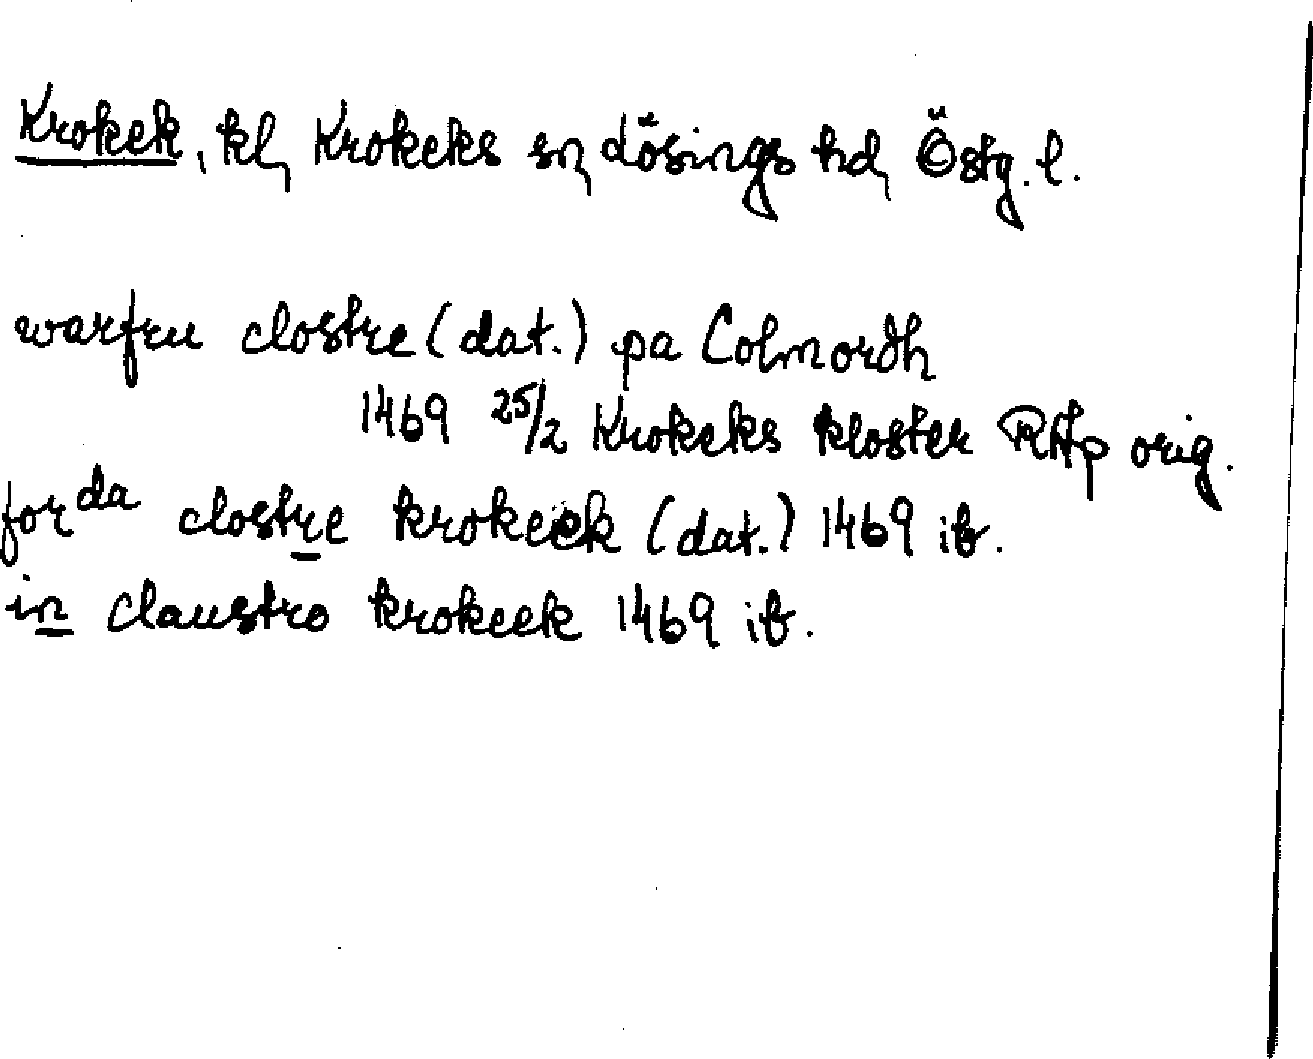 Krokek, kl, Krokeks sn, Lösings hd, Östg. l.
warfru clostre (dat.) pa Colmordh
1469 25/2 Krokeks kloster RAp orig.
for da clostre krokeek (dat.) 1469 ib.
in claustro krokeek 1469 ib.